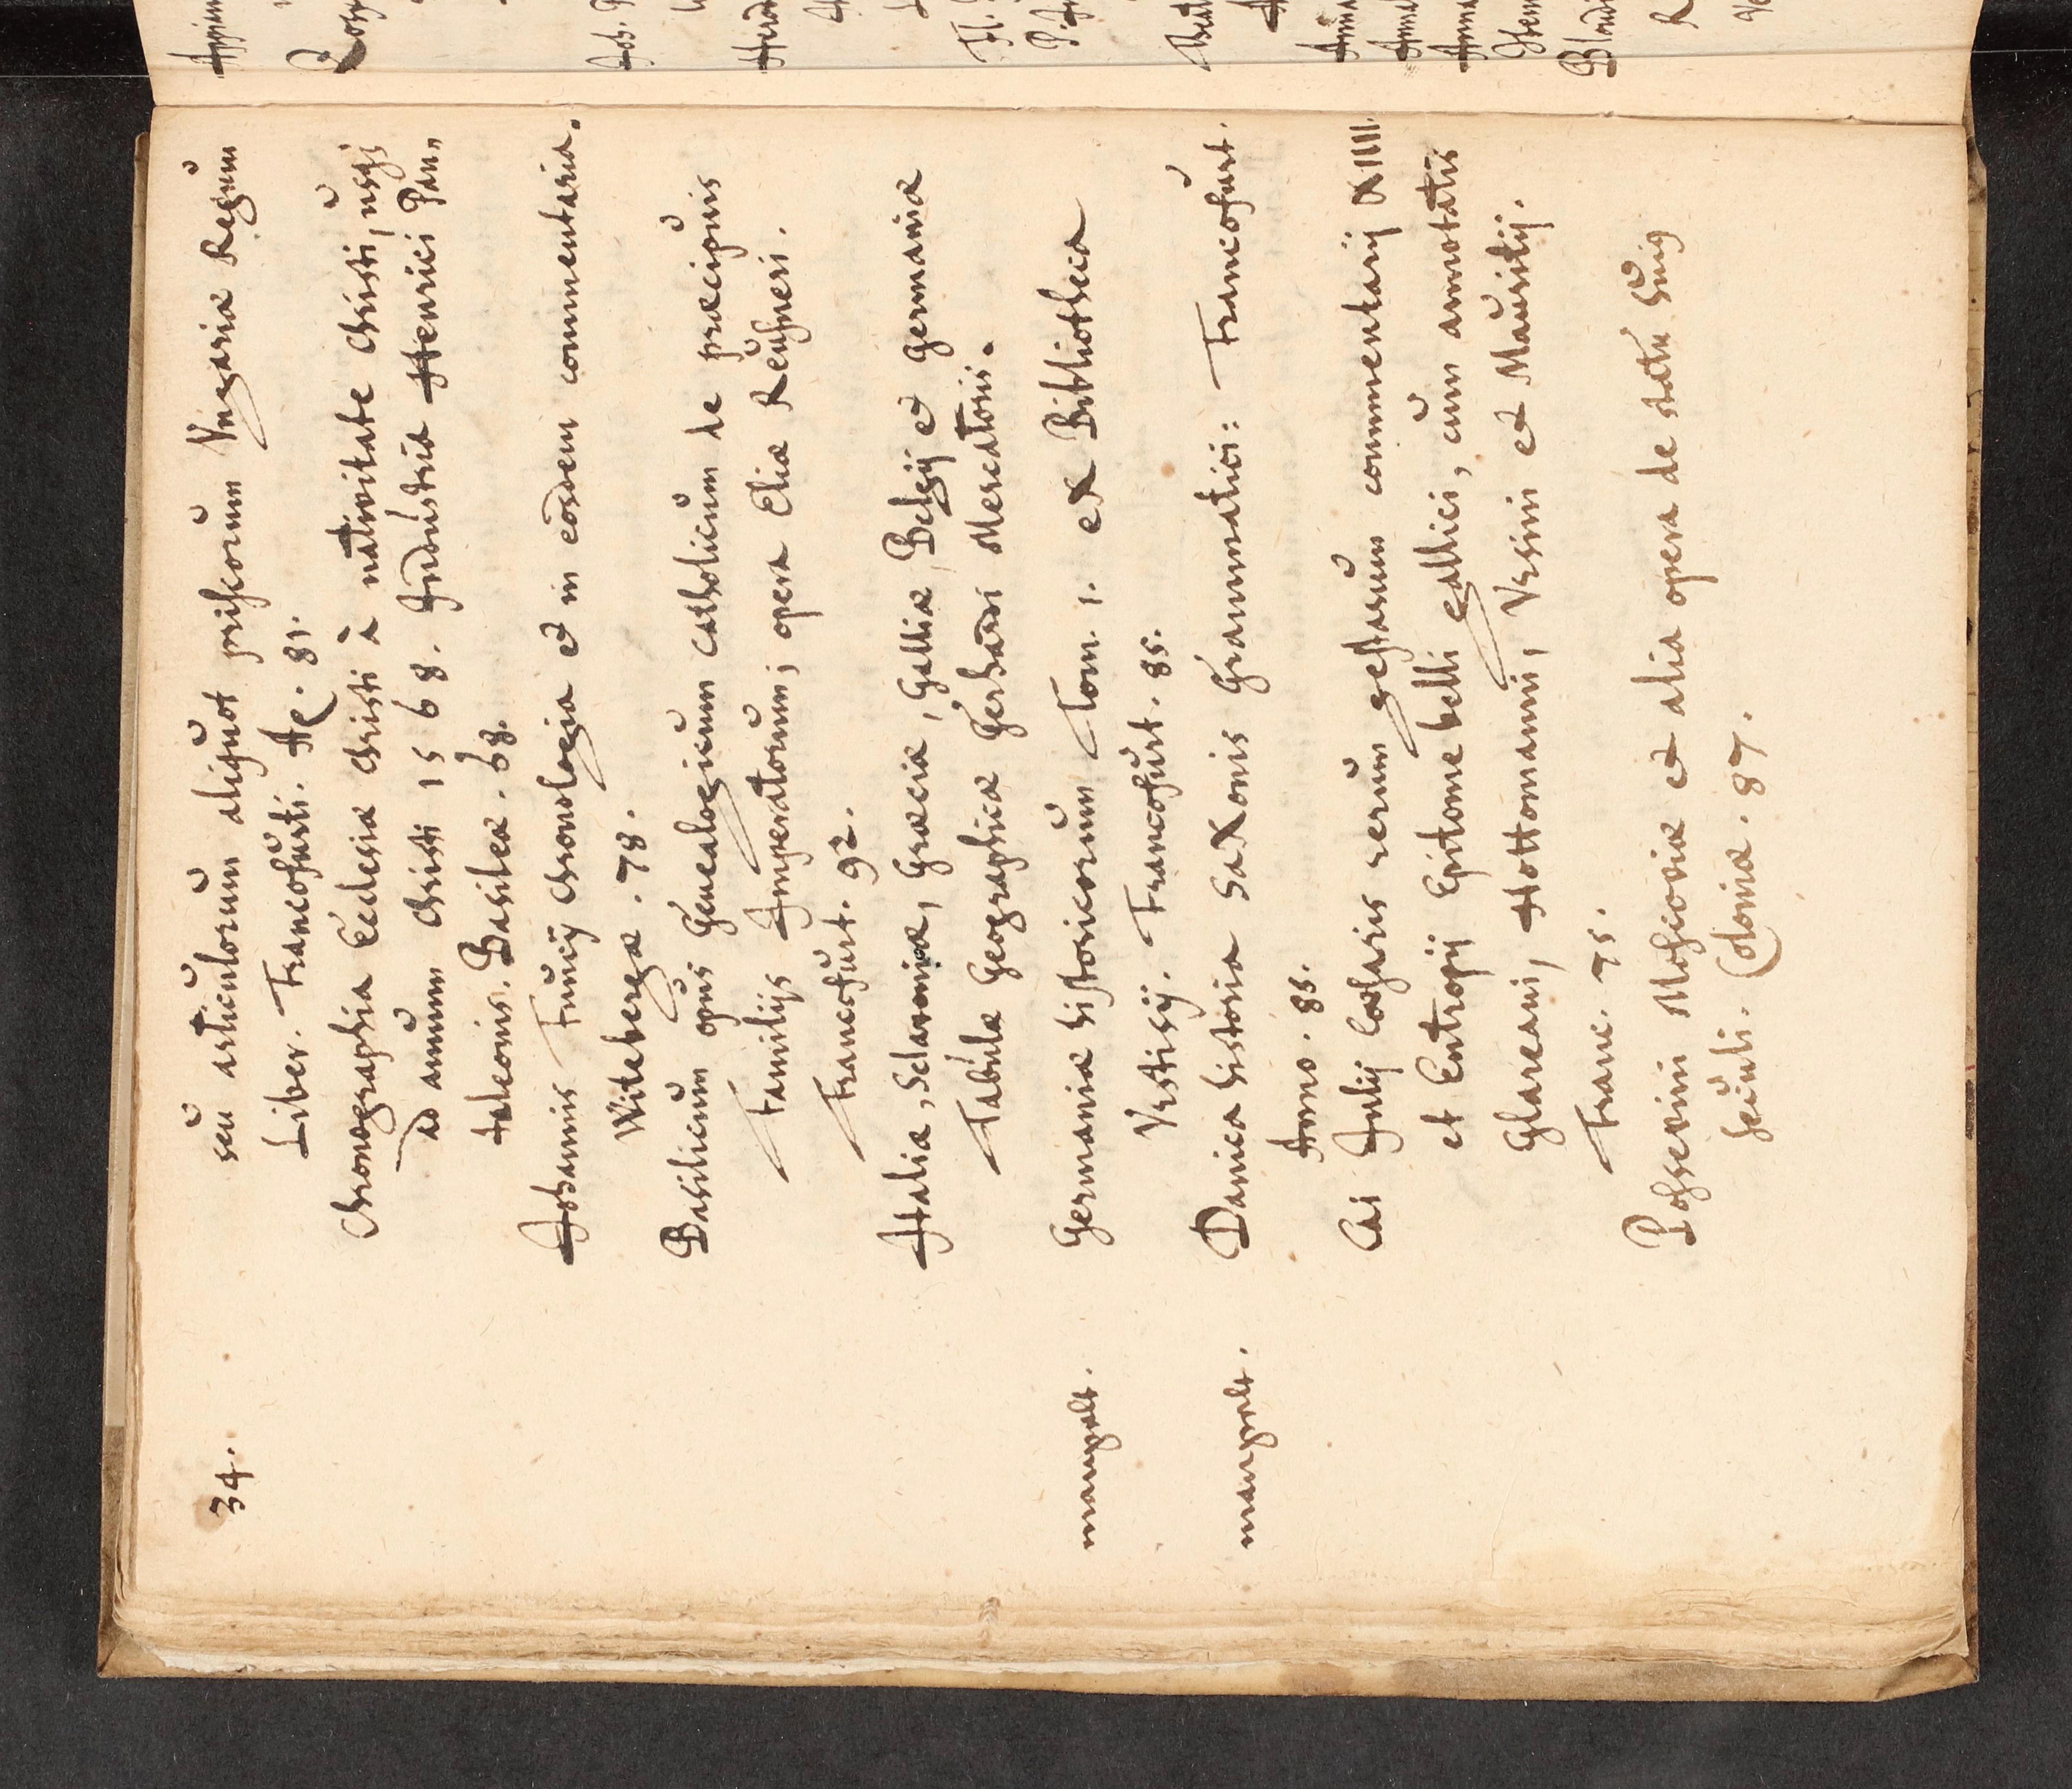 34.
seu articulorum aliquot priscorum Vngariæ Regum
Liber. Francofurti. Ao. 81.
Chronographia Ecclesiæ Christi à nativitate Christi, usq;
ad annum Christi 1568. Industria Henrici Pan„
taleonis. Basileæ. 68.
Johannis Funcij Chronologia et in eosdem commentaria.
Witebergæ. 78.
Basilicum opus Genealogicum catholicum de præcipuis
Familijs Imperatorum; opera Eliæ Reusneri.
Francofurt. 92.
Italiæ, Sclavoniæ, Græciæ, Galliæ, Belgij et Germaniæ
Tabulæ Geographicæ Gerhardi Mercatoris.
mangelt. Germaniæ historicorum Tom. 1. eX Bibliotheca
Vrstisij. Francofurt. 85.
mangelt. Danica historia SaXonis Grammatici: Francofurt.
Anno. 85.
Cai Julij Cæsaris rerum gestarum commentarij XIIII.
et Eutropij Epitome belli Gallici, cum annotatis
Glareani, Hottomanni, Vrsini et Mauritij.
Franc. 75.
Possevini Moscovia et alia opera de statu huiq
seculi. Coloniæ. 87.